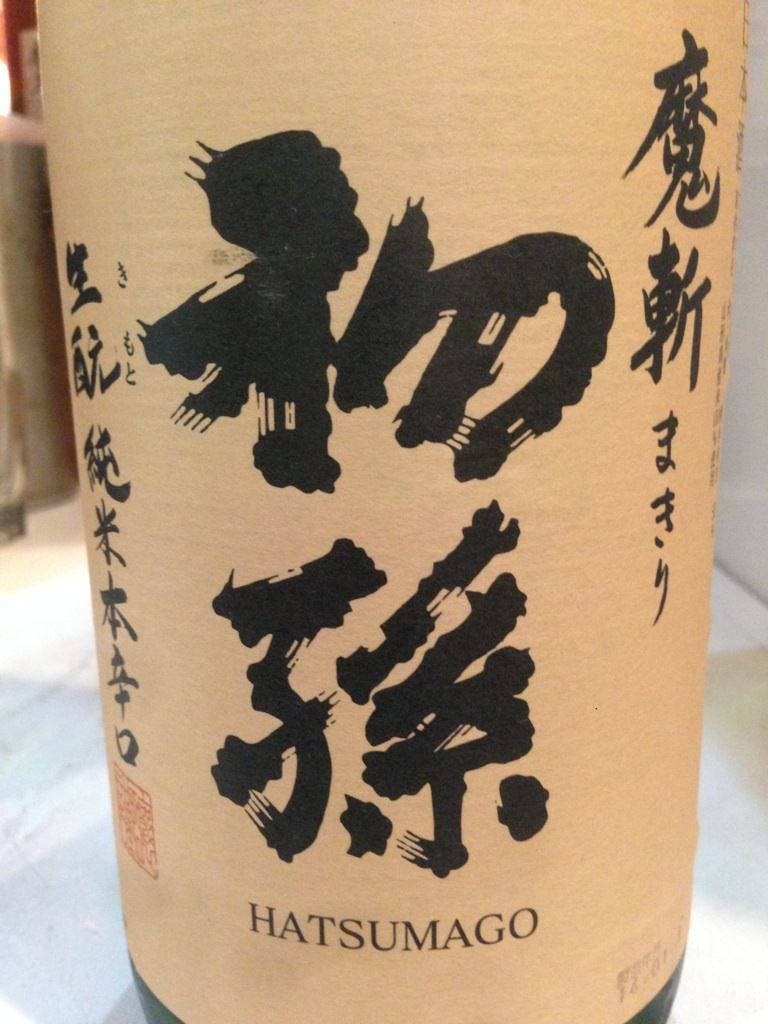 魔斬 まきり
初孫
きもと
生酛 純米本辛口
HATSUMAGO